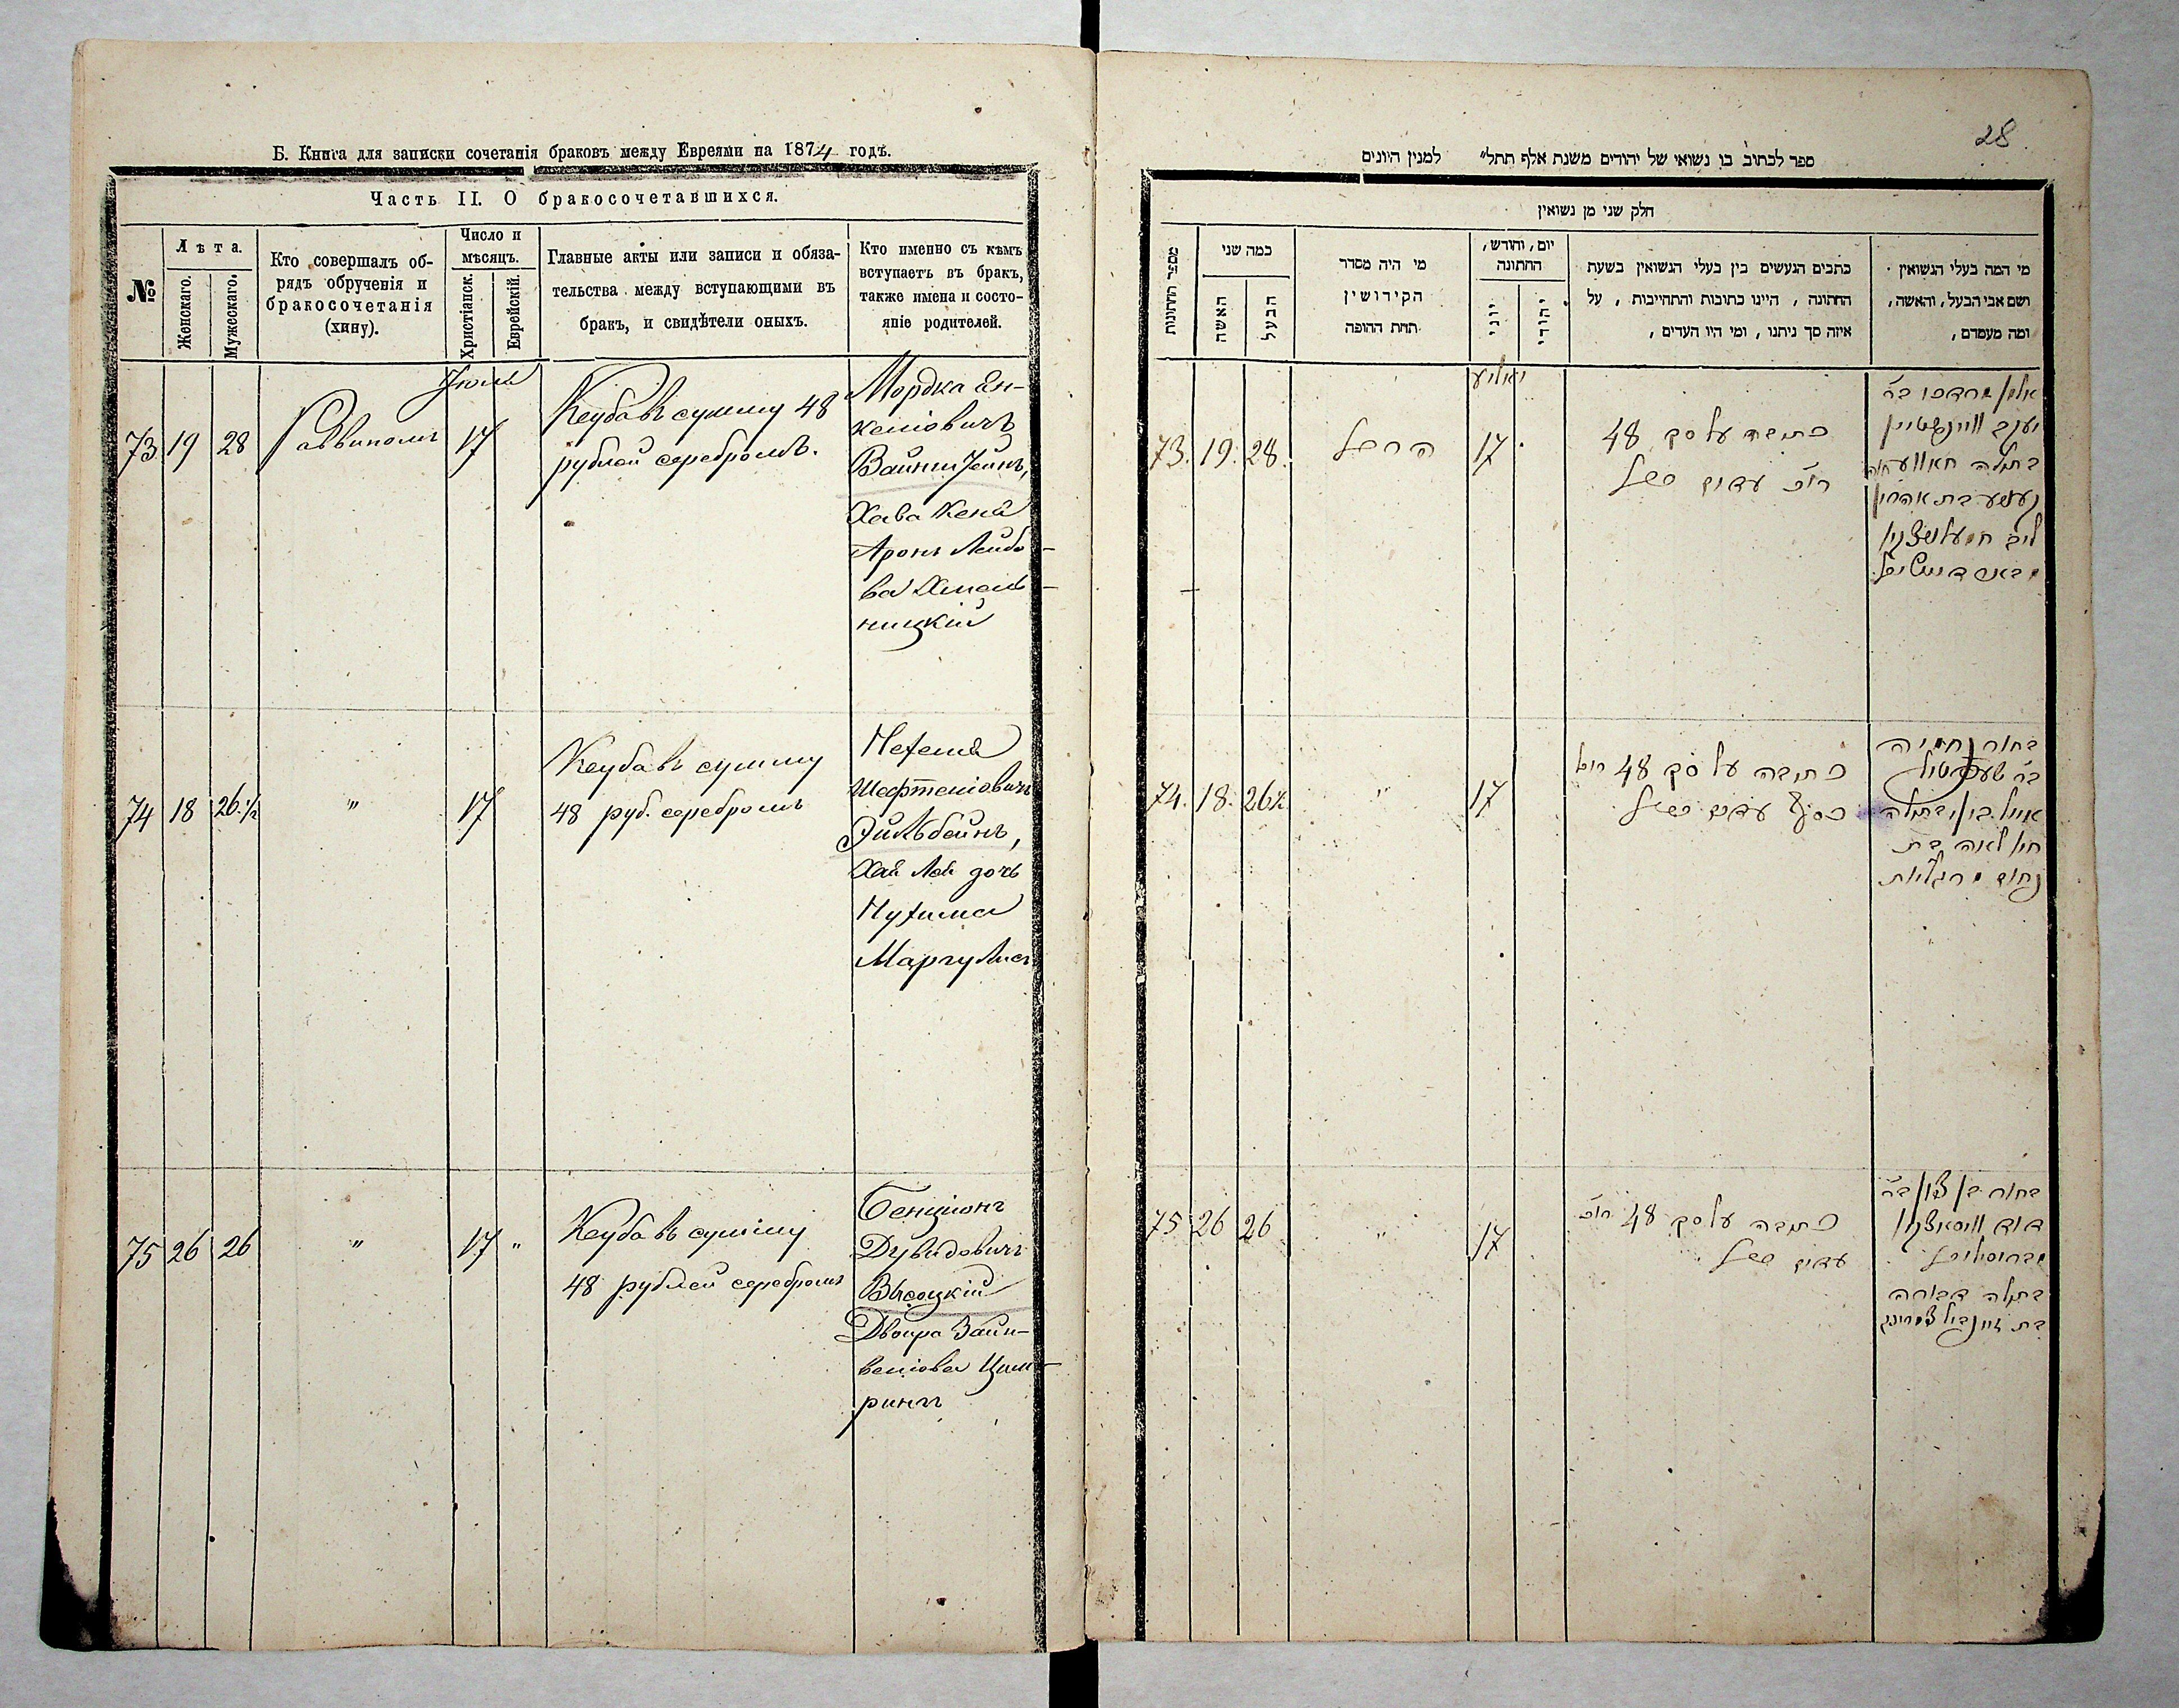 Б. Книга для записки сочетанія браковъ между Евреями на 1874 годъ.
Часть II. О бракосочетавшихся.
№
Лѣта.
Женскаго.
Мужескаго.
Кто совершалъ об-
рядъ обрученія и
бракосочетанія
(хипу).
Число и
мѣсяцъ.
Христіанск.
Еврейскій.
Главные акты или записи и обяза-
тельства между вступающими въ
бракъ, и свидѣтели оныхъ.
Кто именно съ кѣмъ
вступаетъ въ бракъ,
также имена и состо-
яніе родителей.
73 19 28 Раввиномъ
17
Кецба въ сумму 48
рублей серебромъ.
Мордка Ян-
келіовичъ
Вайнштейнъ,
Хава Кеня
Аронъ Лейбо-
ва Хмель-
ницкій
74 18 26 1/2 " 17
Кецба въ сумму
48 руб. серебромъ
Нехемія
Шефтеліовичъ
Эйльбейнъ,
Хая Лея дочь
Нухима
Маргулисъ
75 26 26 " 17 "
Кецба въ сумму
48 рублей серебромъ
Бенціонъ
Дувидовичъ
Высоцкій
Двойра Зайн-
веліова Цим-
рингъ
28
ספר לכתוב בו נשואי של יהודים משנת אלף תתל״ למנין היונים
חלק שני מן נשואין
מספר החתונות
כמה שני
האשה
הבעל
מי היה מסדר
הקידושין
תחת החופה
יום, וחודש,
החתונה
יוני
יהודי
כתבים הנעשים בין בעלי הנשואין בשעת
החתונה, היינו כתובות והתחייבות, על
איזה סך ניתנו, ומי היו העדים,
מי המה בעלי הנשואין
ושם אבי הבעל, והאשה,
ומה מעמדם,
73. 19. 28. 17
כתובה על סך 48
יעקב וויינשטיין
בת אהרון
74. 18. 26 1/2 " 17
כתובה על סך 48
בחור נחמיה
חי׳ לאה בת
נחום מרגליות
75 26 26 " 17
כתובה על סך 48
בחור בן ציון ב״ר
דוד
בתולה דבורה